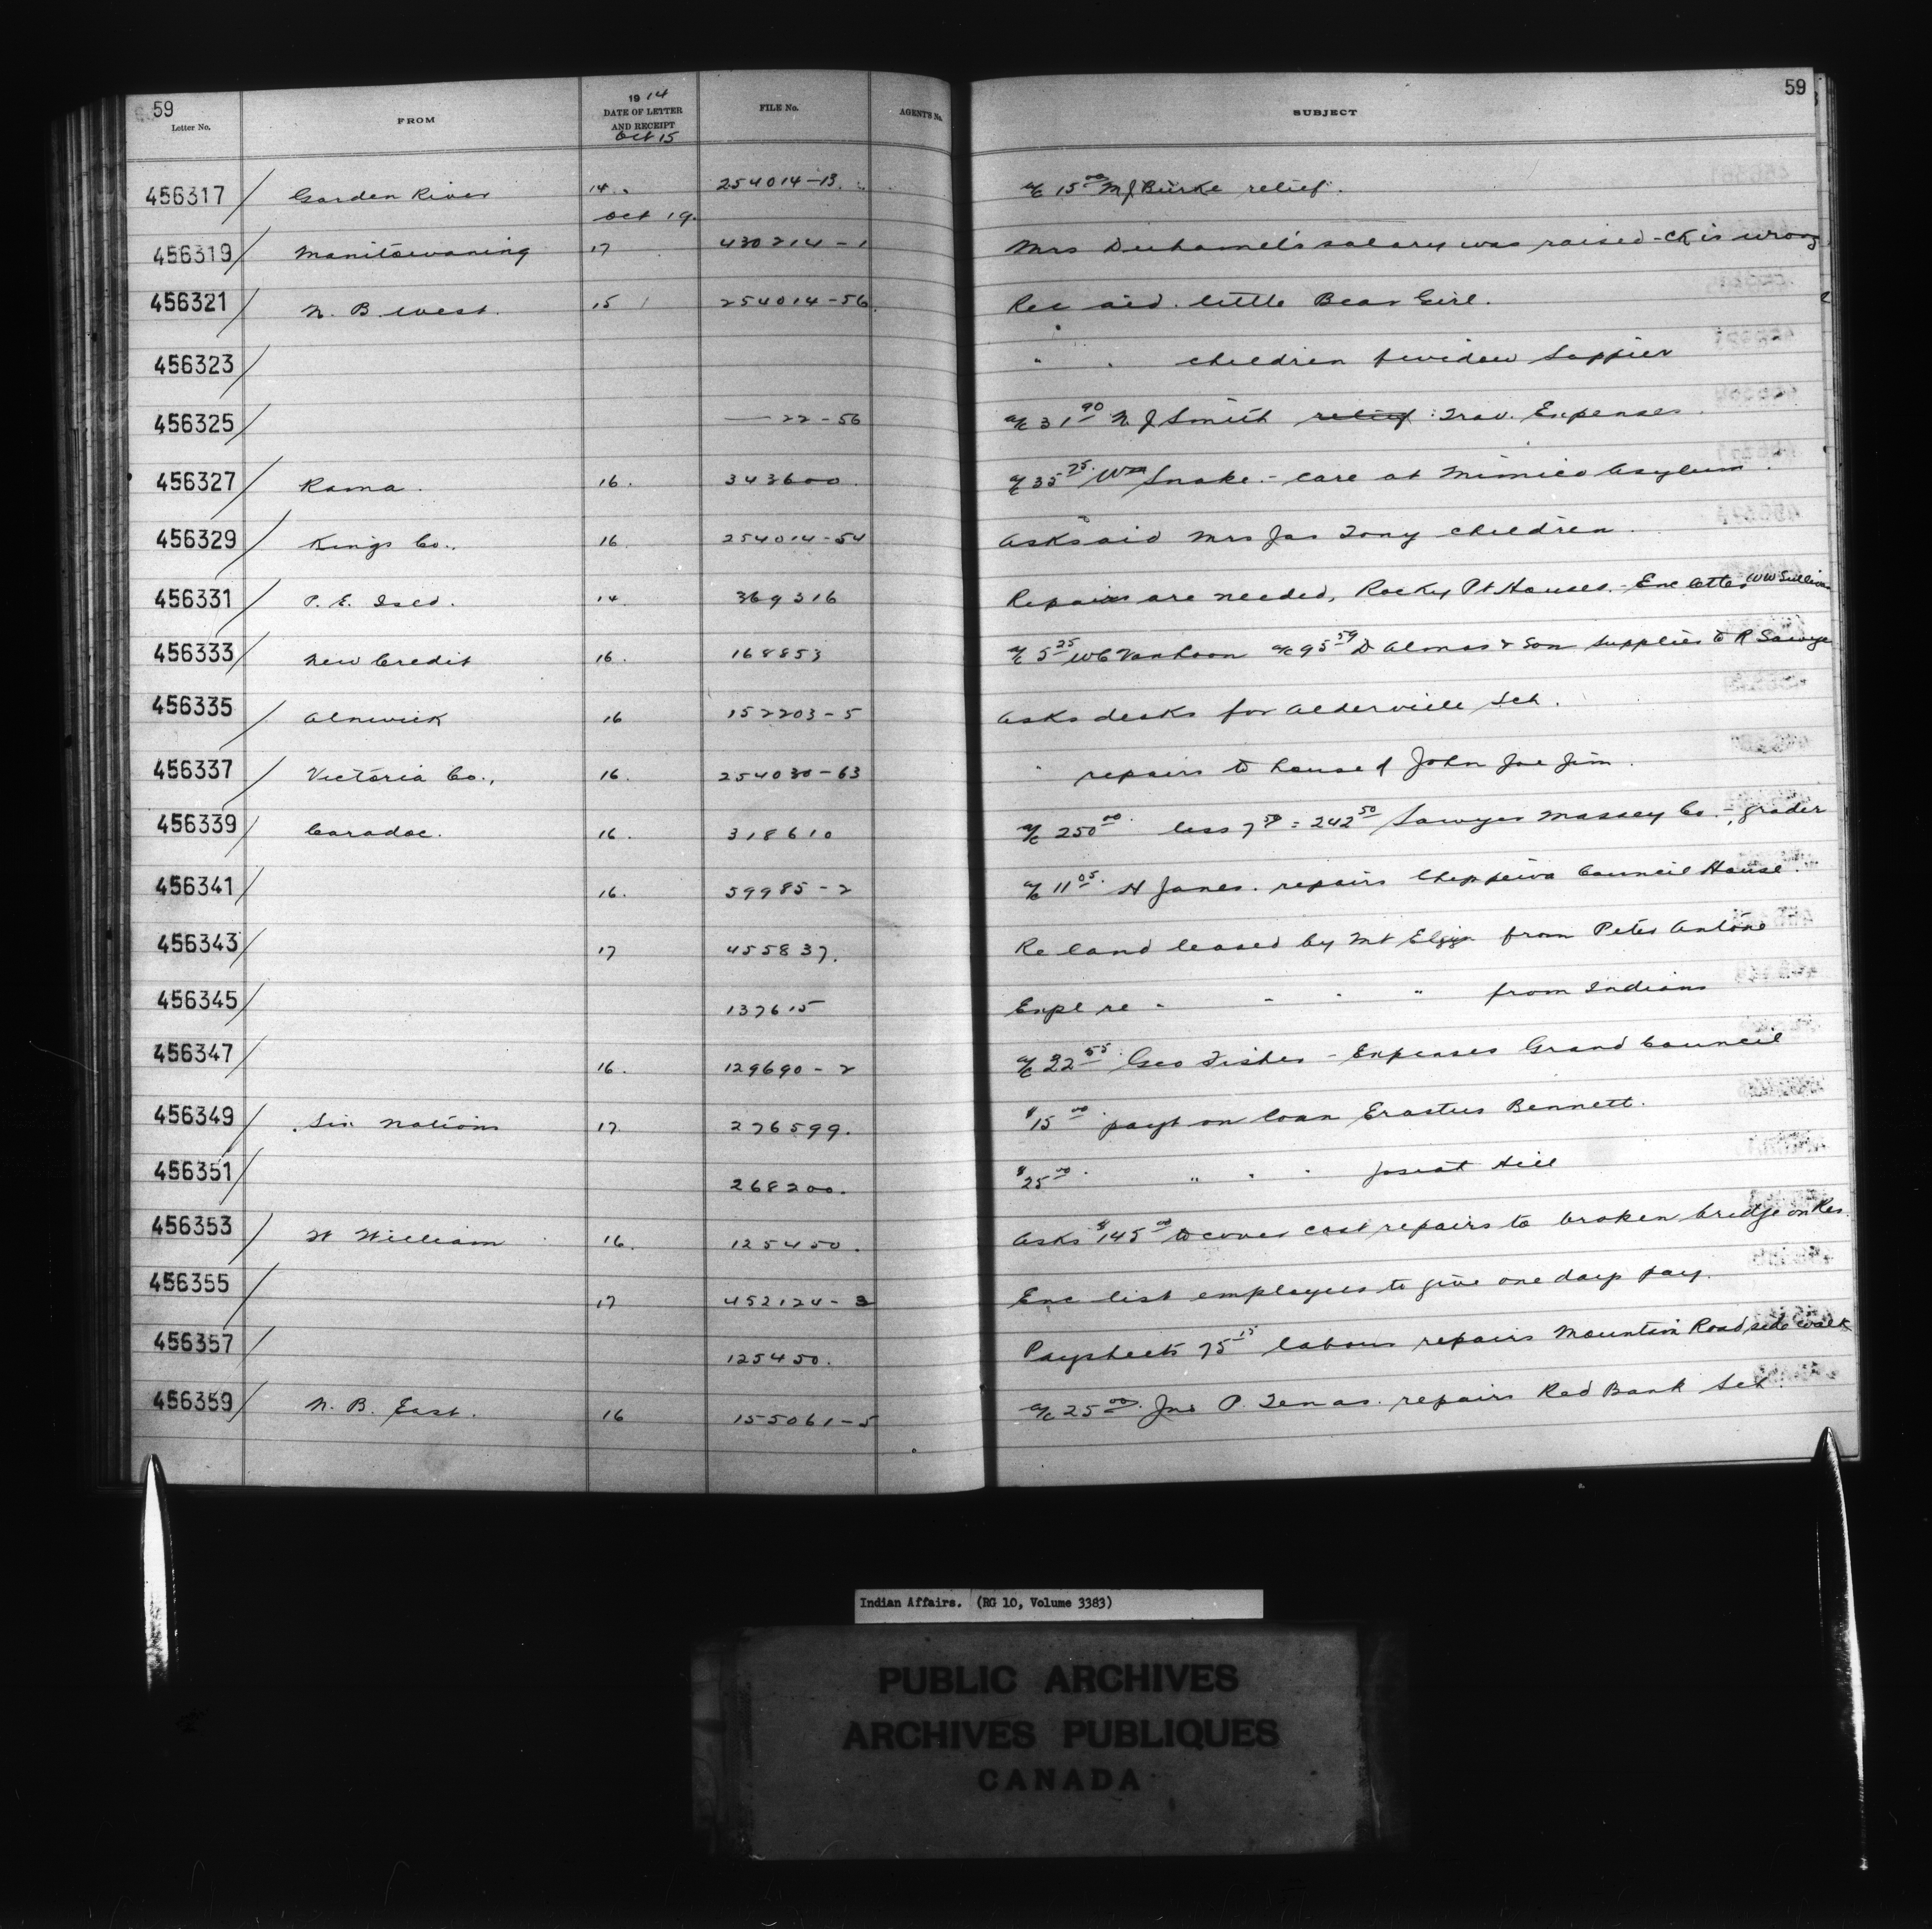 59 59
Letter No. FROM 1914 DATE OF LETTER AND RECEIPT Oct 15 FILE No. AGENT'S No. SUBJECT
456317 Garden River 14 254014-13 a/c 15.00 M J Burke relief.
Oct 19.
456319 Manitowaning 17 430214-1 Mrs Duhamel's salary was raised - ck is wrong
456321 N. B. West. 15 254014-56 Rec aid. little Bear Girl.
456323 " " children of widow Sappier
456325 — 22-56 a/c 31.90 N J Smith relief : Trav. Expenses.
456327 Rama. 16. 343600. a/c 35.75 Wm Snake. - care at Mimico Asylum.
456329 Kings Co., 16. 254014-54 Asks aid Mrs Jas Tony children.
456331 P. E. Isld. 14. 369316 Repairs are needed, Rocky Pt Houses. - Enc letter W W Sullivan
456333 New Credit 16. 168853 a/c 5.25 W C VanLoon a/c 95.59 D Almas & Son supplies to R Sawye
456335 Alnwick 16 152203-5 Asks desks for Alderville Sch.
456337 Victoria Co., 16. 254030-63 " repairs to house of John Joe Jim.
456339 Caradoc. 16. 318610 a/c 250.00 less 7.50 = 242.50 Sawyer Massey Co. -, grader
456341 16. 59985-2 a/c 11.05. H James. repairs Chippewa Council House.
456343 17 455837. Re land leased by Mt Elgin from Peter Antone
456345 137615 Expl re " " " " from Indians
456347 16. 129690-2 a/c 22.55 Geo Fisher - Expenses Grand Council
456349 Six Nations 17. 276599. $15.00 payt on loan Erastus Bennett.
456351 268200. $25.00. " " " Josiah Hill
456353 Ft William 16. 125450. Asks $145.00 to cover cost repairs to broken bridge on Res.
456355 17 452124-3 Enc list employees to give one days pay.
456357 125450. Paysheets 75.15 labour repairs Mountain Road, side walk
456359 N. B. East. 16 155061-5 a/c 25.00. Jno P. Tenas. repairs Red Bank Sch.
Indian Affairs. (RG 10, Volume 3383)
PUBLIC ARCHIVES
ARCHIVES PUBLIQUES
CANADA